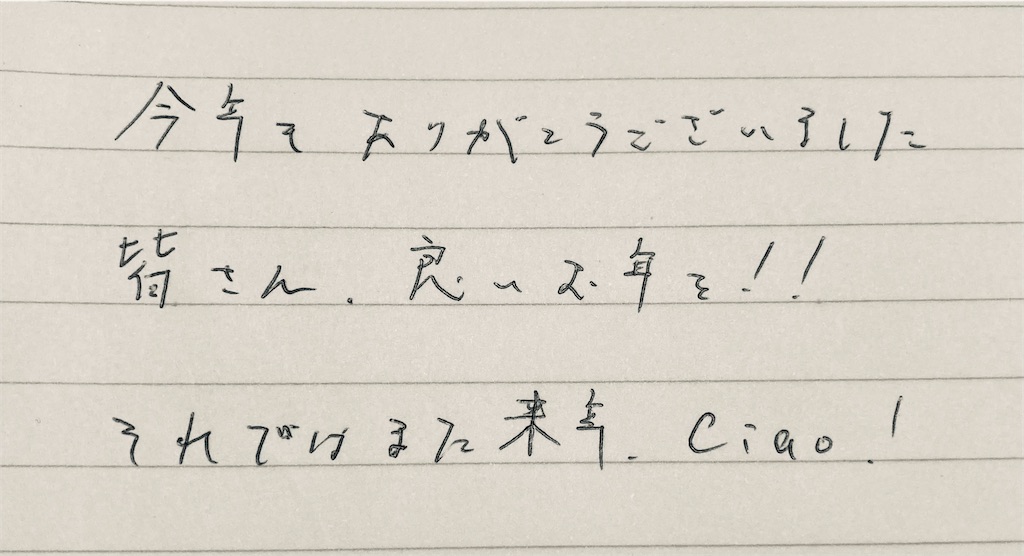 今年もありがとうございました
皆さん、良いお年を!!
それではまた来年、Ciao!